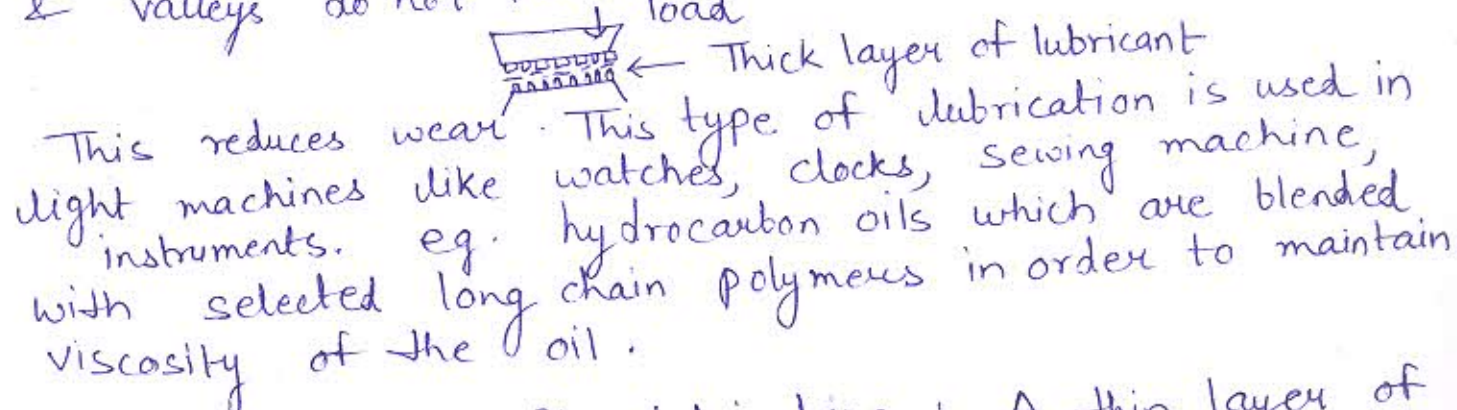 & valleys do not
load
Thick layer of lubricant
This reduces wear. This type of lubrication is used in
light machines like watches, clocks, sewing machine,
instruments. eg. hydrocarbon oils which are blended
with selected long chain polymers in order to maintain
viscosity of the oil.
A thin layer of